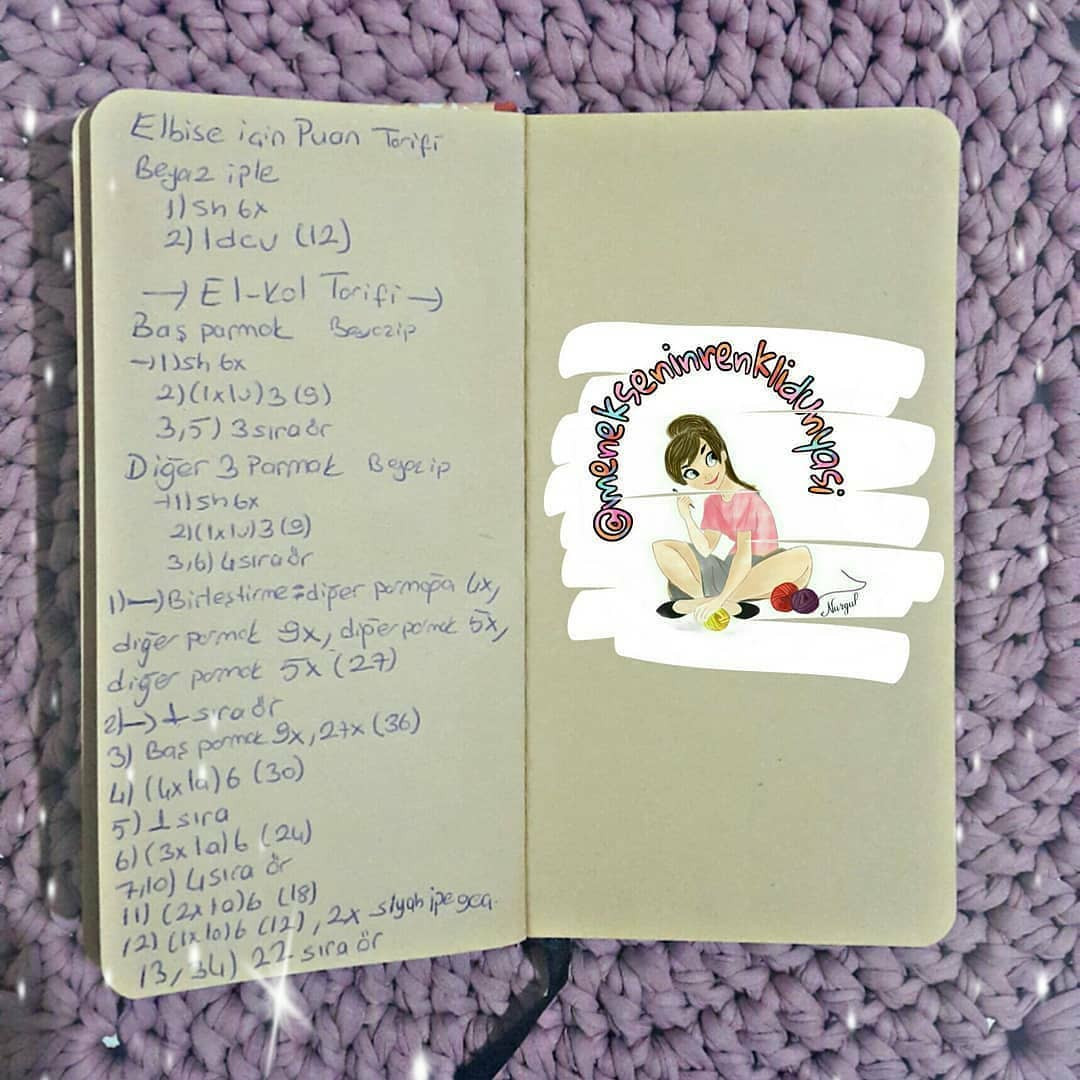 Elbise için Puan Tarifi
Beyaz iple
1) Sh 6x
2) 1dcv (12)
→ El-kol Tarifi →
Baş parmak Beyaz ip
→ 1) sh 6x
2) (1x1v) 3 (9)
3,5) 3 sıra ör
Diğer 3 Parmak Beyaz ip
→ 1) sh 6x
2) (1x1v) 3 (9)
3,6) 4 sıra ör
1) → Birleştirme: diğer parmağa 4x,
diğer parmak 9x, diğer parmak 5x,
diğer parmak 5x (27)
2) → 1 sıra ör
3) Baş parmak 9x, 27x (36)
4) (4x1a) 6 (30)
5) 1 sıra
6) (3x1a) 6 (24)
7,10) 4 sıra ör
11) (2x1a) 6 (18)
12) (1x1a) 6 (12), 2x siyah ipe geç.
13,34) 22 sıra ör
@menekseninrenklidunyasi
Nurgul